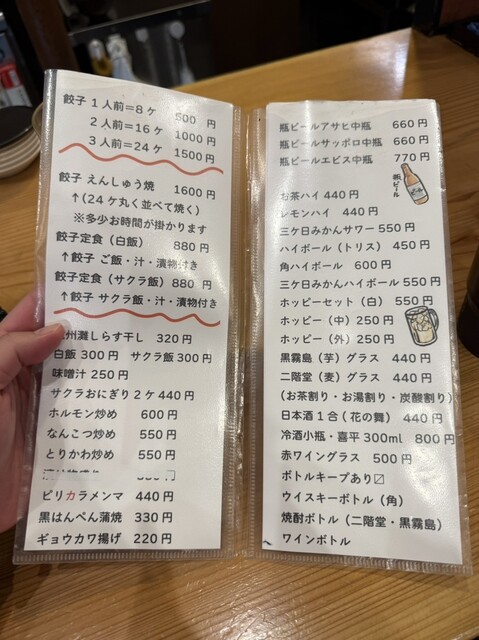 餃子 1人前=8ケ 500 円
2人前=16ケ 1000円
3人前=24ケ 1500円
餃子 えんしゅう焼 1600円
↑(24ケ丸く並べて焼く)
※多少お時間が掛かります
餃子定食(白飯) 880円
↑餃子 ご飯・汁・漬物付き
餃子定食(サクラ飯)880 円
↑餃子 サクラ飯・汁・漬物付き
州灘しらす干し 320円
白飯300円 サクラ飯300円
味噌汁250円
サクラおにぎり2ケ440円
ホルモン炒め 600円
なんこつ炒め 550円
とりかわ炒め 550円
ピリカラメンマ 440円
黒はんぺん蒲焼 330円
ギョウカワ揚げ 220円
瓶ビールアサヒ中瓶 660円
瓶ビールサッポロ中瓶 660円
瓶ビールエビス中瓶 770円
瓶ビール
お茶ハイ 440円
レモンハイ 440円
三ケ日みかんサワー 550円
ハイボール(トリス) 450円
角ハイボール 600円
三ケ日みかんハイボール550円
ホッピーセット(白) 550円
ホッピー(中)250円
ホッピー(外)250円
黒霧島(芋)グラス 440円
二階堂(麦)グラス 440円
(お茶割り・お湯割り・炭酸割り)
日本酒1合(花の舞) 440円
冷酒小瓶・喜平300ml 800円
赤ワイングラス 500円
ボトルキープあり〼
ウイスキーボトル(角)
焼酎ボトル(二階堂・黒霧島)
ワインボトル